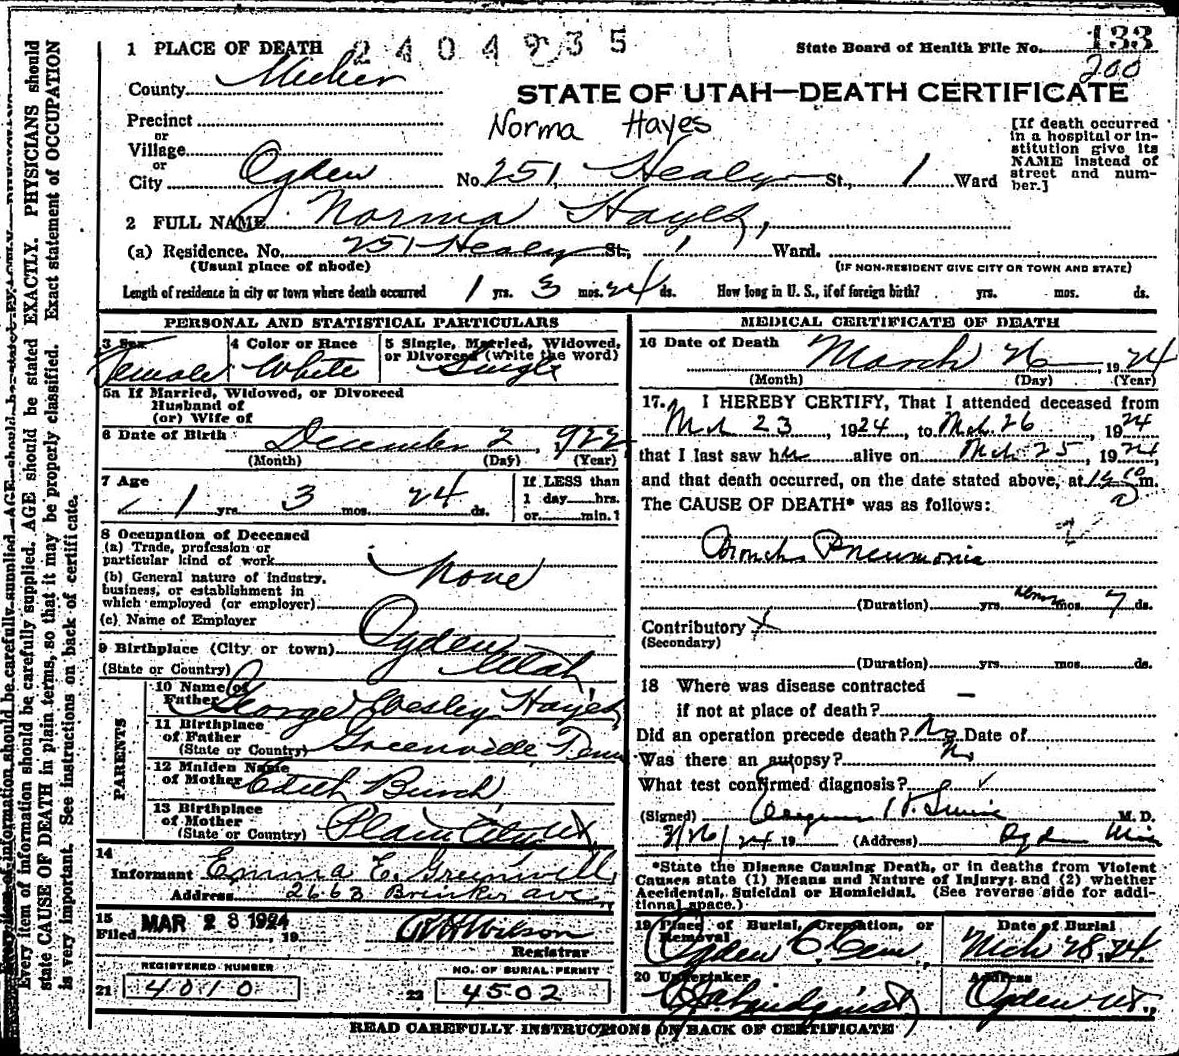 1 PLACE OF DEATH 2404935 State Board of Health File No. 133
200
County
STATE OF UTAH—DEATH CERTIFICATE
Precinct
or
Village
or
City Ogden No. 251, Healy St., 1 Ward
Norma Hayes
[If death occurred
in a hospital or in-
stitution give its
NAME instead of
street and num-
ber.]
2 FULL NAME Norma Hayes,
(a) Residence. No. 251 Healy St., 1 Ward.
(Usual place of abode) (IF NON-RESIDENT GIVE CITY OR TOWN AND STATE)
Length of residence in city or town where death occurred 1 yrs. 3 mos. 24 ds. How long in U. S., if of foreign birth? yrs. mos. ds.
PERSONAL AND STATISTICAL PARTICULARS
3 Sex Female
4 Color or Race White
5 Single, Married, Widowed,
or Divorced (write the word)
Single
5a If Married, Widowed, or Divorced
Husband of
(or) Wife of
6 Date of Birth December 2, 1922
(Month) (Day) (Year)
7 Age 1 yrs. 3 mos. 24 ds.
If LESS than
1 day hrs.
or min.?
8 Occupation of Deceased
(a) Trade, profession or
particular kind of work None
(b) General nature of industry,
business, or establishment in
which employed (or employer)
(c) Name of Employer
9 Birthplace (City or town) Ogden
(State or Country) Utah
PARENTS
10 Name of
Father George Wesley Hayes
11 Birthplace
of Father
(State or Country) Greenville, Tenn
12 Maiden Name
of Mother Edith Burch
13 Birthplace
of Mother
(State or Country) Plain City Ut
14
Informant Emma E. Greenwell
Address 2663 Brinker ave,
15
Filed MAR 28 1924, 19 Wilson
Registrar
REGISTERED NUMBER
21 4010
NO. OF BURIAL PERMIT
22 4502
MEDICAL CERTIFICATE OF DEATH
16 Date of Death March 26, 1924
(Month) (Day) (Year)
17. I HEREBY CERTIFY, That I attended deceased from
Mch 23, 1924, to Mch 26, 1924
that I last saw her alive on Mch 25, 1924,
and that death occurred, on the date stated above, at m.
The CAUSE OF DEATH* was as follows:
Broncho Pneumonia
(Duration) yrs. mos. 7 ds.
Contributory
(Secondary)
(Duration) yrs. mos. ds.
18 Where was disease contracted
if not at place of death? —
Did an operation precede death? No Date of
Was there an autopsy? No
What test confirmed diagnosis?
(Signed) M. D.
3/26/24 19 (Address) Ogden
*State the Disease Causing Death, or in deaths from Violent
Causes state (1) Means and Nature of Injury; and (2) whether
Accidental, Suicidal or Homicidal. (See reverse side for addi-
tional space.)
19 Place of Burial, Cremation, or
Removal
Ogden C. Cem.,
Date of Burial
Mch 28, 1924.
20 Undertaker
Lindquist
Address
Ogden Ut.,
READ CAREFULLY INSTRUCTIONS ON BACK OF CERTIFICATE
Every item of information should be carefully supplied. AGE should be stated EXACTLY. PHYSICIANS should
state CAUSE OF DEATH in plain terms, so that it may be properly classified. Exact statement of OCCUPATION
is very important. See instructions on back of certificate.